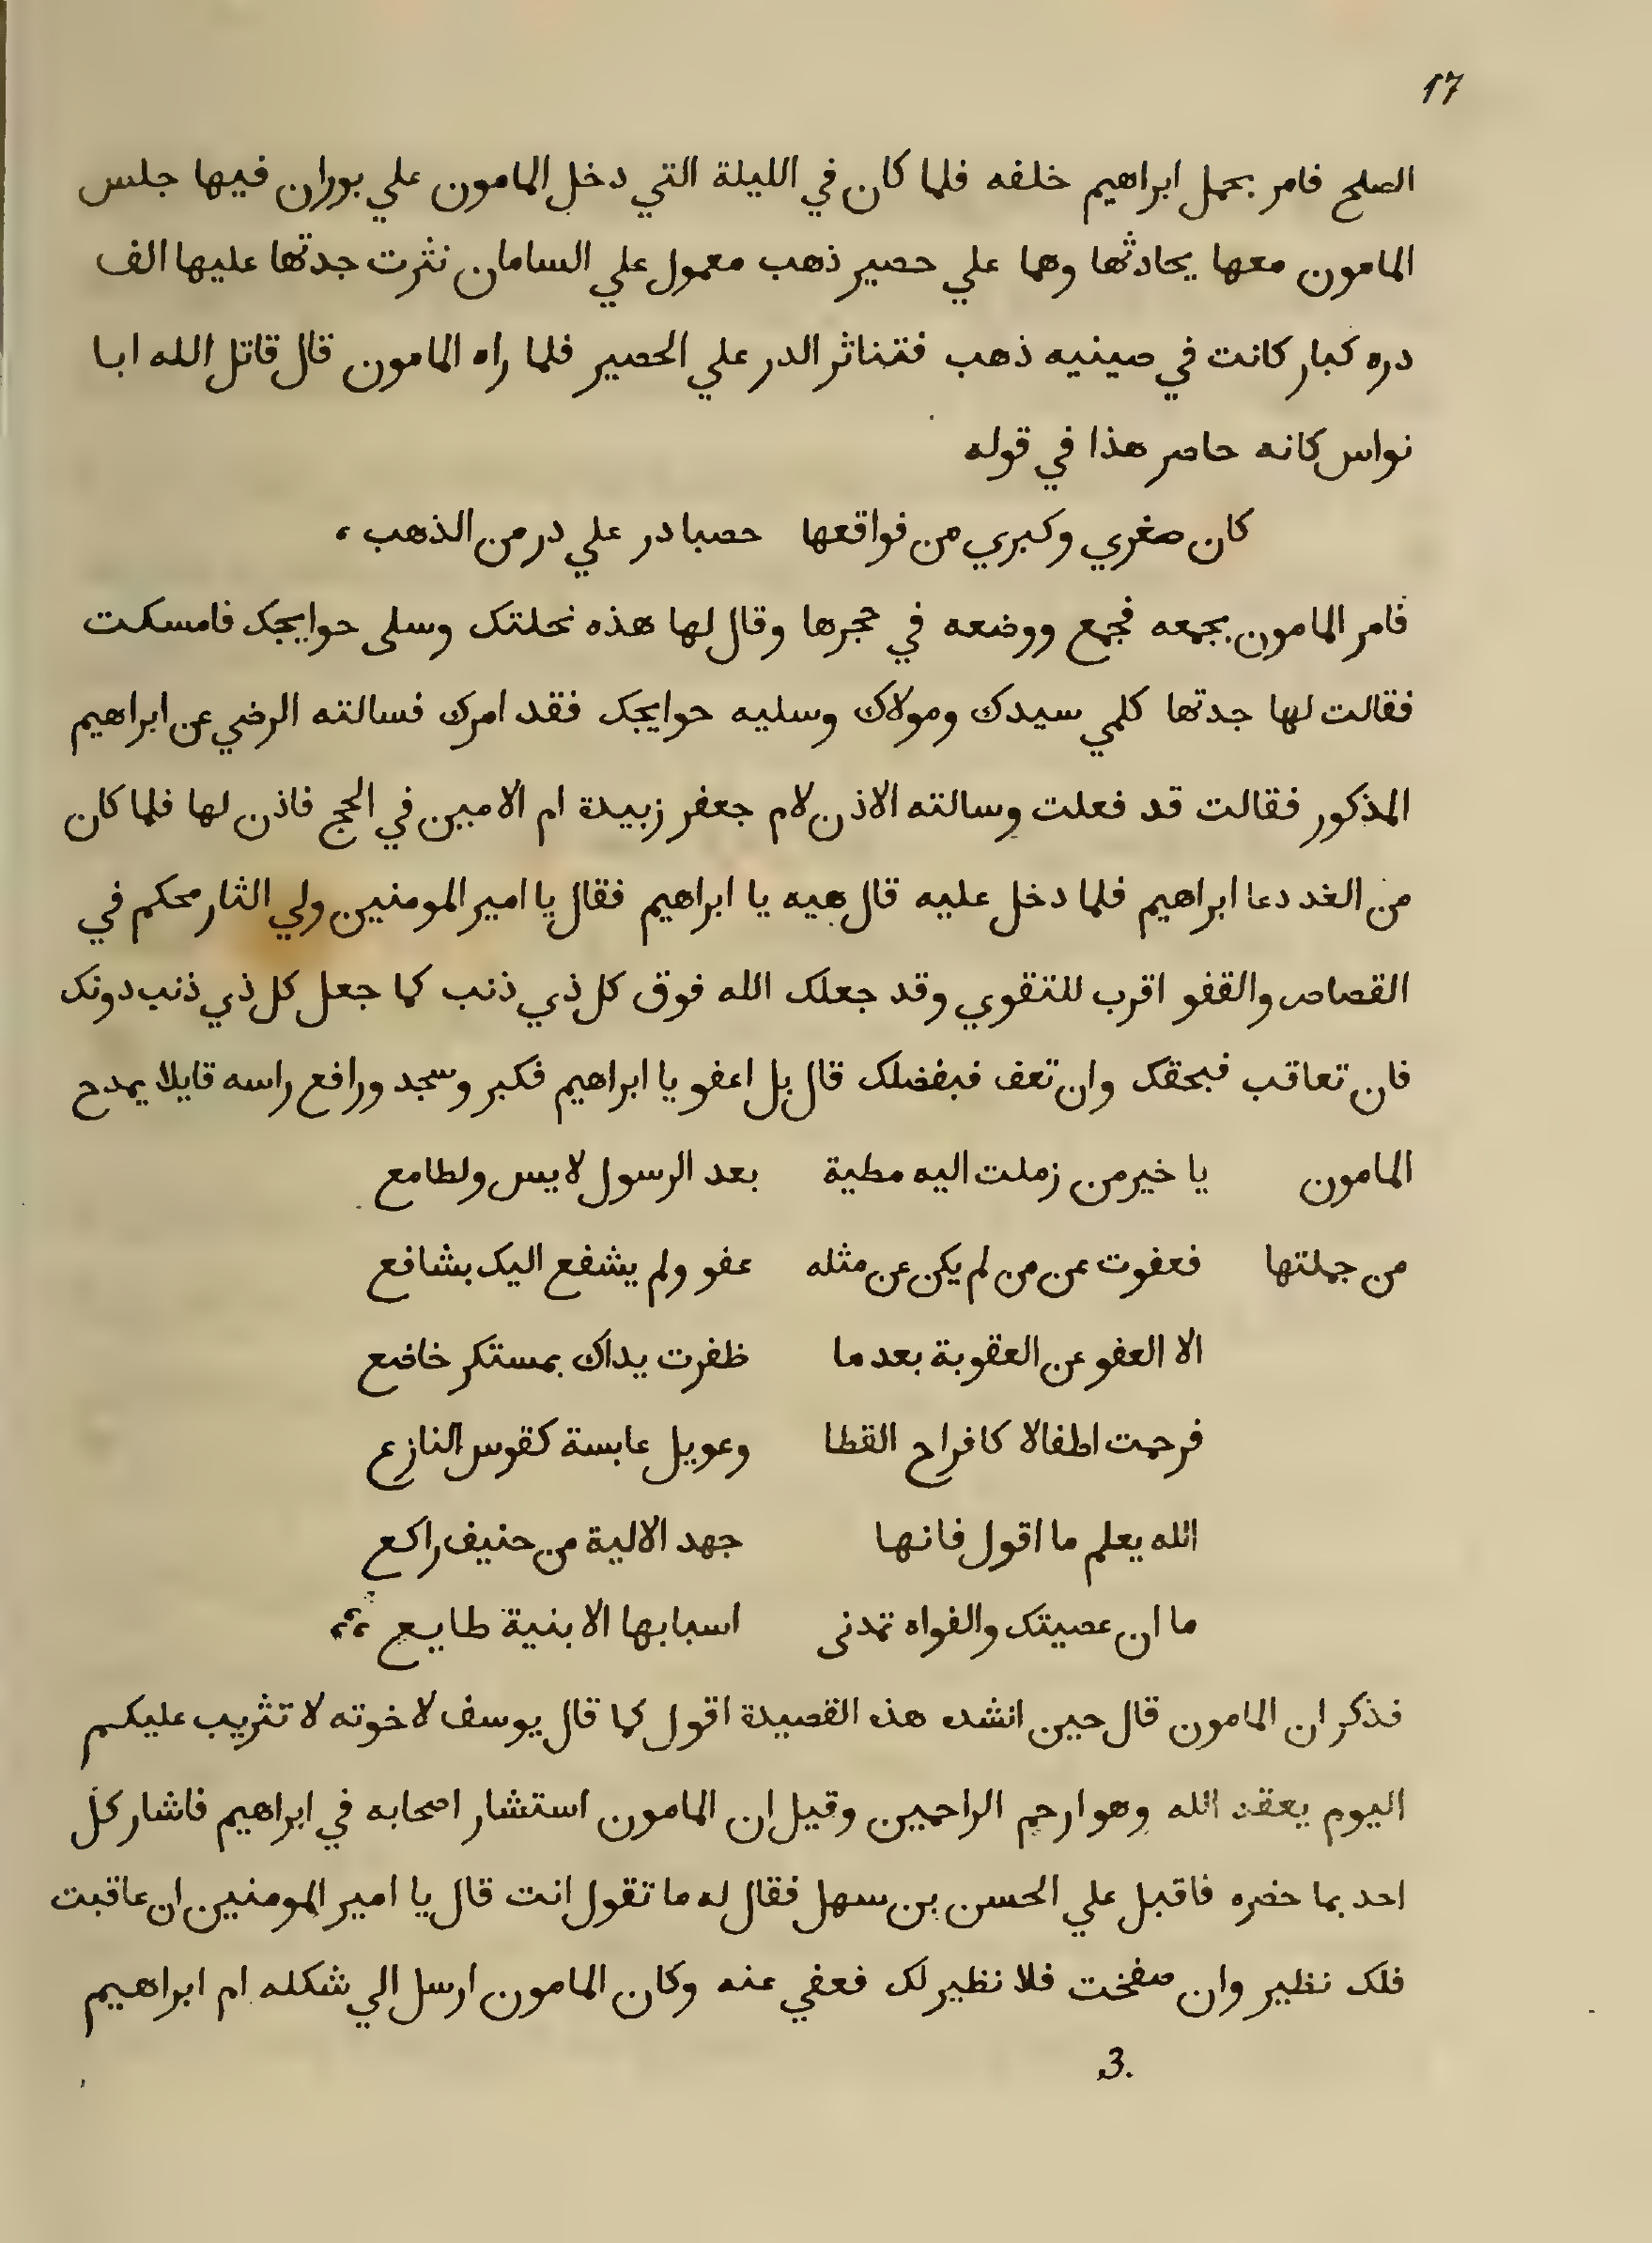 17
الصلح فامر بحمل ابراهيم خلفه فلما كان في الليلة التي دخل المامون علي بوران فيها جلس
المامون معها يحادثها وهما علي حصير ذهب معمول علي السامان نثرت جدتها عليها الف
دره كبار كانت في صينيه ذهب فتناثر الدر علي الحصير فلما راه المامون قال قاتل الله ابا
نواس كانه حاصر هذا في قوله
كان صغري وكبري من فواقعها حصبا در علي در من الذهب ،
فامر المامون بجمعه فجمع ووضعه في حجرها وقال لها هذه نحلتك وسلى حوايجك فامسكت
فقالت لها جدتها كلمي سيدك ومولاك وسليه حوايجك فقد امرك فسالته الرضي عن ابراهيم
المذكور فقالت قد فعلت وسالته الاذن لام جعفر زبيدة ام الامين في الحج فاذن لها فلما كان
من الغد دعا ابراهيم فلما دخل عليه قال هيه يا ابراهيم فقال يا امير المومنين ولي الثار محكم في
القصاص والقفو اقرب للتقوي وقد جعلك الله فوق كل ذي ذنب كما جعل كل ذي ذنب دونك
فان تعاقب فبحقك وان تعف فبفضلك قال بل اعفو يا ابراهيم فكبر وسجد ورافع راسه قايلا يمدح
المامون يا خير من زملت اليه مطية بعد الرسول لايس ولطامع
من جملتها فعفوت عن من لم يكن عن مثله عفو ولم يشفع اليك بشافع
الا العفو عن العقوبة بعد ما ظفرت يداك بمستكر خاضع
فرحمت اطفالا كافراح القطا وعويل عابسة كقوس النازع
الله يعلم ما اقول فانها جهد الالية من حنيف راكع
ما ان عصيتك والفواه تمدنى اسبابها الا بنية طايع
فذكر ان المامون قال حين انشده هذه القصيدة اقول كما قال يوسف لاخوته لا تثريب عليكم
اليوم الله وهو ارحم الراحمين وقيل ان المامون استشار اصحابه في ابراهيم فاشار كل
احد بما حضره فاقبل علي الحسن بن سهل فقال له ما تقول انت قال يا امير المومنين ان عاقبت
فلك نظير وان صفخت فلا نظير لك فعفي عنه وكان المامون ارسل الي شكله ام ابراهيم
3.